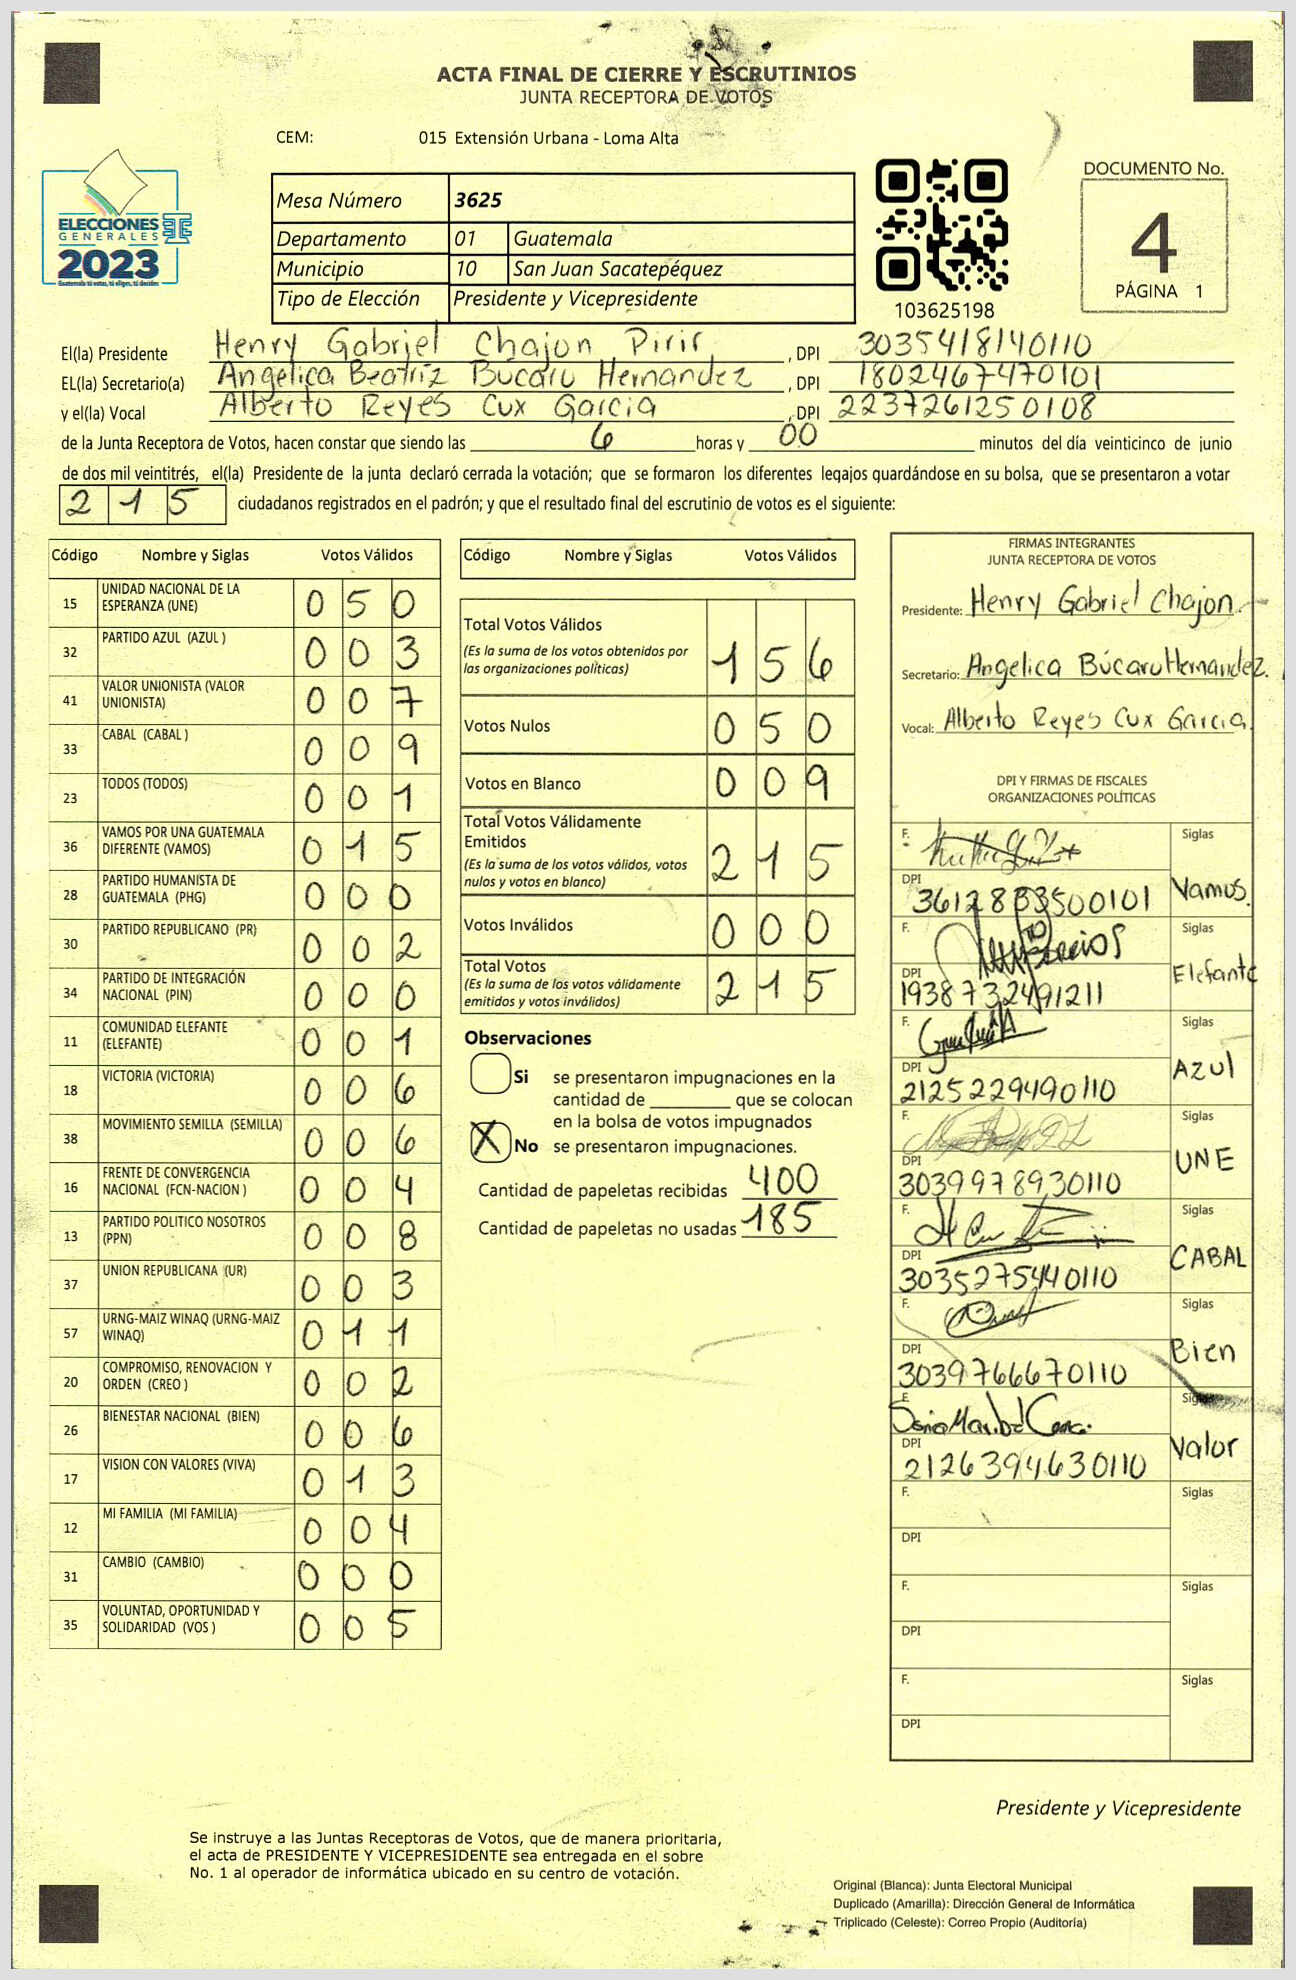 ACTA FINAL DE CIERRE Y ESCRUTINIOS
JUNTA RECEPTORA DE VOTOS
CEM: 015 Extensión Urbana - Loma Alta
ELECCIONES
GENERALES
2023
Guatemala tú votas, tú eliges, tú decides
Mesa Número 3625
Departamento 01 Guatemala
Municipio 10 San Juan Sacatepéquez
Tipo de Elección Presidente y Vicepresidente
103625198
DOCUMENTO No.
4
PÁGINA 1
El(la) Presidente Henry Gabriel Chajon Pirir, DPI 3035418140110
EL(la) Secretario(a) Angelica Beatriz Bucaru Hernandez, DPI 1802467470101
y el(la) Vocal Alberto Reyes Cux Garcia, DPI 2237261250108
de la Junta Receptora de Votos, hacen constar que siendo las 6 horas y 00 minutos del día veinticinco de junio
de dos mil veintitrés, el(la) Presidente de la junta declaró cerrada la votación; que se formaron los diferentes legajos guardándose en su bolsa, que se presentaron a votar
215 ciudadanos registrados en el padrón; y que el resultado final del escrutinio de votos es el siguiente:
Código Nombre y Siglas Votos Válidos
15 UNIDAD NACIONAL DE LA ESPERANZA (UNE) 050
32 PARTIDO AZUL (AZUL ) 003
41 VALOR UNIONISTA (VALOR UNIONISTA) 007
33 CABAL (CABAL ) 009
23 TODOS (TODOS) 001
36 VAMOS POR UNA GUATEMALA DIFERENTE (VAMOS) 015
28 PARTIDO HUMANISTA DE GUATEMALA (PHG) 000
30 PARTIDO REPUBLICANO (PR) 002
34 PARTIDO DE INTEGRACIÓN NACIONAL (PIN) 000
11 COMUNIDAD ELEFANTE (ELEFANTE) 001
18 VICTORIA (VICTORIA) 006
38 MOVIMIENTO SEMILLA (SEMILLA) 006
16 FRENTE DE CONVERGENCIA NACIONAL (FCN-NACION ) 004
13 PARTIDO POLITICO NOSOTROS (PPN) 008
37 UNION REPUBLICANA (UR) 003
57 URNG-MAIZ WINAQ (URNG-MAIZ WINAQ) 011
20 COMPROMISO, RENOVACION Y ORDEN (CREO ) 002
26 BIENESTAR NACIONAL (BIEN) 006
17 VISION CON VALORES (VIVA) 013
12 MI FAMILIA (MI FAMILIA) 004
31 CAMBIO (CAMBIO) 000
35 VOLUNTAD, OPORTUNIDAD Y SOLIDARIDAD (VOS ) 005
Código Nombre y Siglas Votos Válidos
Total Votos Válidos 156
(Es la suma de los votos obtenidos por
las organizaciones políticas)
Votos Nulos 050
Votos en Blanco 009
Total Votos Válidamente
Emitidos 215
(Es la suma de los votos válidos, votos
nulos y votos en blanco)
Votos Inválidos 000
Total Votos 215
(Es la suma de los votos válidamente
emitidos y votos inválidos)
Observaciones
Si se presentaron impugnaciones en la
cantidad de ________ que se colocan
en la bolsa de votos impugnados
X No se presentaron impugnaciones.
Cantidad de papeletas recibidas 400
Cantidad de papeletas no usadas 185
FIRMAS INTEGRANTES
JUNTA RECEPTORA DE VOTOS
Presidente: Henry Gabriel Chajon
Secretario: Angelica Búcaru Hernandez.
Vocal: Alberto Reyes Cux Garcia.
DPI Y FIRMAS DE FISCALES
ORGANIZACIONES POLÍTICAS
F. Siglas
DPI 3612883500101 Vamos.
F. Siglas
DPI 1938732491211 Elefante
F. Siglas
DPI 2125229490110 Azul
F. Siglas
DPI 3039978930110 UNE
F. Siglas
DPI 3035275440110 CABAL
F. Siglas
DPI 3039766670110 Bien
F. Siglas
DPI 2126394630110 Valor
F. Siglas
DPI
F. Siglas
DPI
F. Siglas
DPI
Presidente y Vicepresidente
Se instruye a las Juntas Receptoras de Votos, que de manera prioritaria,
el acta de PRESIDENTE Y VICEPRESIDENTE sea entregada en el sobre
No. 1 al operador de informática ubicado en su centro de votación.
Original (Blanca): Junta Electoral Municipal
Duplicado (Amarilla): Dirección General de Informática
Triplicado (Celeste): Correo Propio (Auditoría)